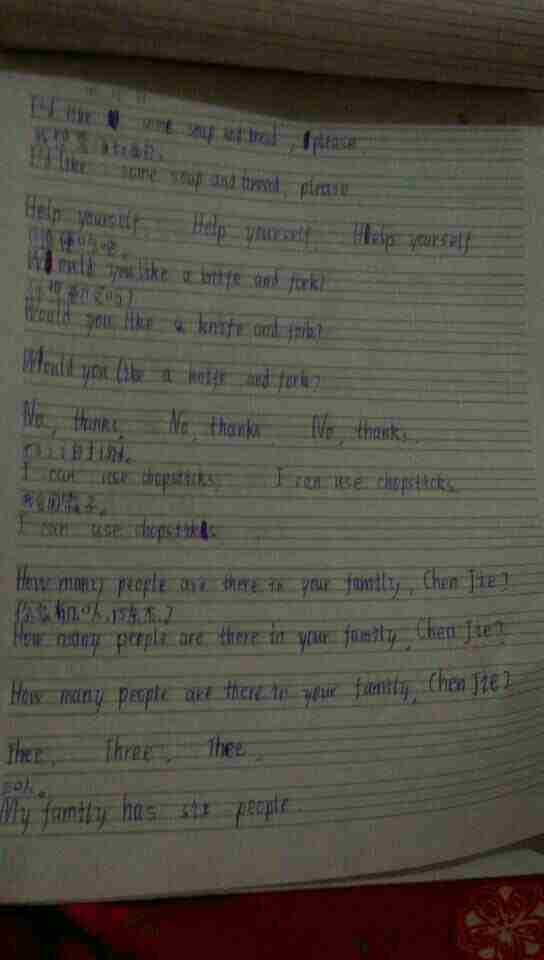 I'd like some soup and bread, please.
I'd like some soup and bread, please
Help yourself. Help yourself. Help yourself
Would you like a knife and fork?
Would you like a knife and fork?
Would you like a knife and fork?
No, thanks. No, thanks No, thanks.
I can use chopsticks. I can use chopsticks.
我会用筷子。
I can use chopstiks
How many people are there in your family, Chen Jie?
How many people are there in your family, Chen Jie?
How many people are there in your family, Chen Jie?
Thee. Three. Thee.
三口人。
My family has six people.